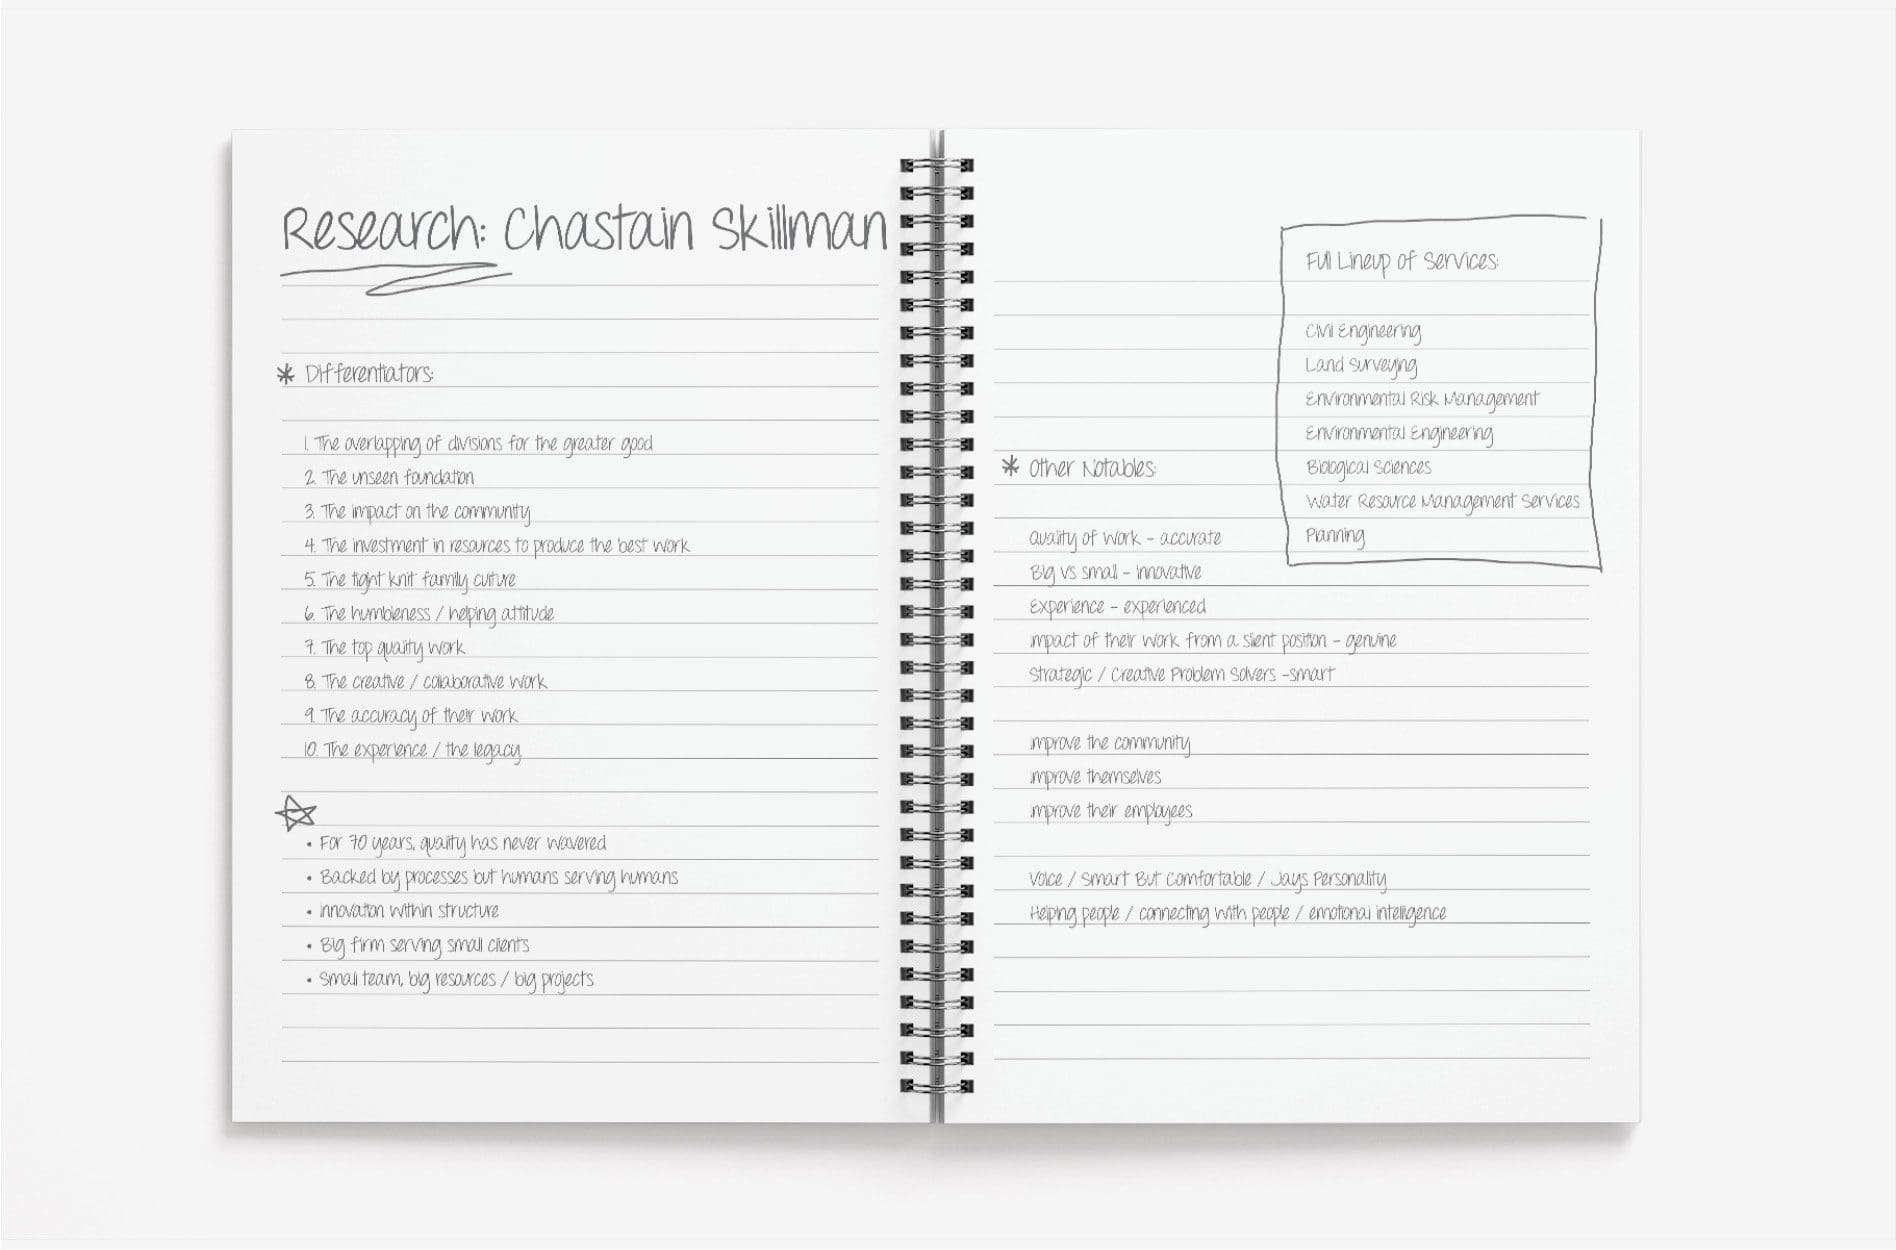 Research: Chastain Skillman
* Differentiators:
1. The overlapping of divisions for the greater good
2. The unseen foundation
3. The impact on the community
4. The investment in resources to produce the best work
5. The tight knit family culture
6. The humbleness / helping attitude
7. The top quality work
8. The creative / collaborative work
9. The accuracy of their work
10. The experience / the legacy
• For 70 years, quality has never wavered
• Backed by processes but humans serving humans
• innovation within structure
• Big firm serving small clients
• Small team, big resources / big projects
Full Lineup of Services:
Civil Engineering
Land Surveying
Environmental Risk Management
Environmental Engineering
Biological Sciences
Water Resource Management Services
Planning
* Other Notables:
Quality of work - accurate
Big vs small - innovative
Experience - experienced
impact of their work from a silent position - genuine
Strategic / Creative Problem Solvers -smart
improve the community
improve themselves
improve their employees
Voice / Smart But Comfortable / Jays Personality
Helping people / connecting with people / emotional intelligence